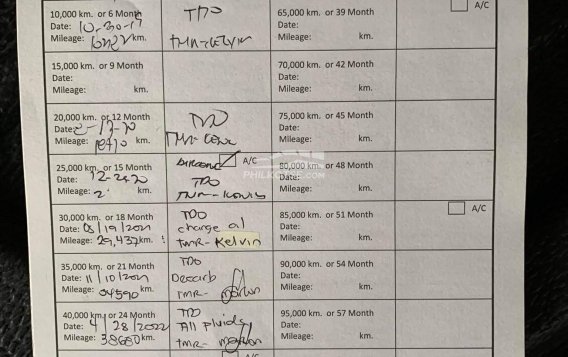 10,000 km. or 6 Month
Date: 10-30-19
Mileage: km.
TDO
TMR-KELVIN
65,000 km. or 39 Month
Date:
Mileage: km.
A/C
15,000 km. or 9 Month
Date:
Mileage: km.
70,000 km. or 42 Month
Date:
Mileage: km.
20,000 km. or 12 Month
Date:
Mileage: km.
TDO
75,000 km. or 45 Month
Date:
Mileage: km.
25,000 km. or 15 Month
Date:
Mileage: km.
A/C
TDO
80,000 km. or 48 Month
Date:
Mileage: km.
PHILKOTSE.COM
30,000 km. or 18 Month
Date: 08/19/2021
Mileage: 29,437 km.
TDO
charge al
TMR- Kelvin
85,000 km. or 51 Month
Date:
Mileage: km.
A/C
35,000 km. or 21 Month
Date: 11/10/2021
Mileage: km.
TDO
Decarb
TMR- Marlon
90,000 km. or 54 Month
Date:
Mileage: km.
40,000 km. or 24 Month
Date: 4/28/2022
Mileage: 38680 km.
TDO
All fluids
TMR- Marlon
95,000 km. or 57 Month
Date:
Mileage: km.